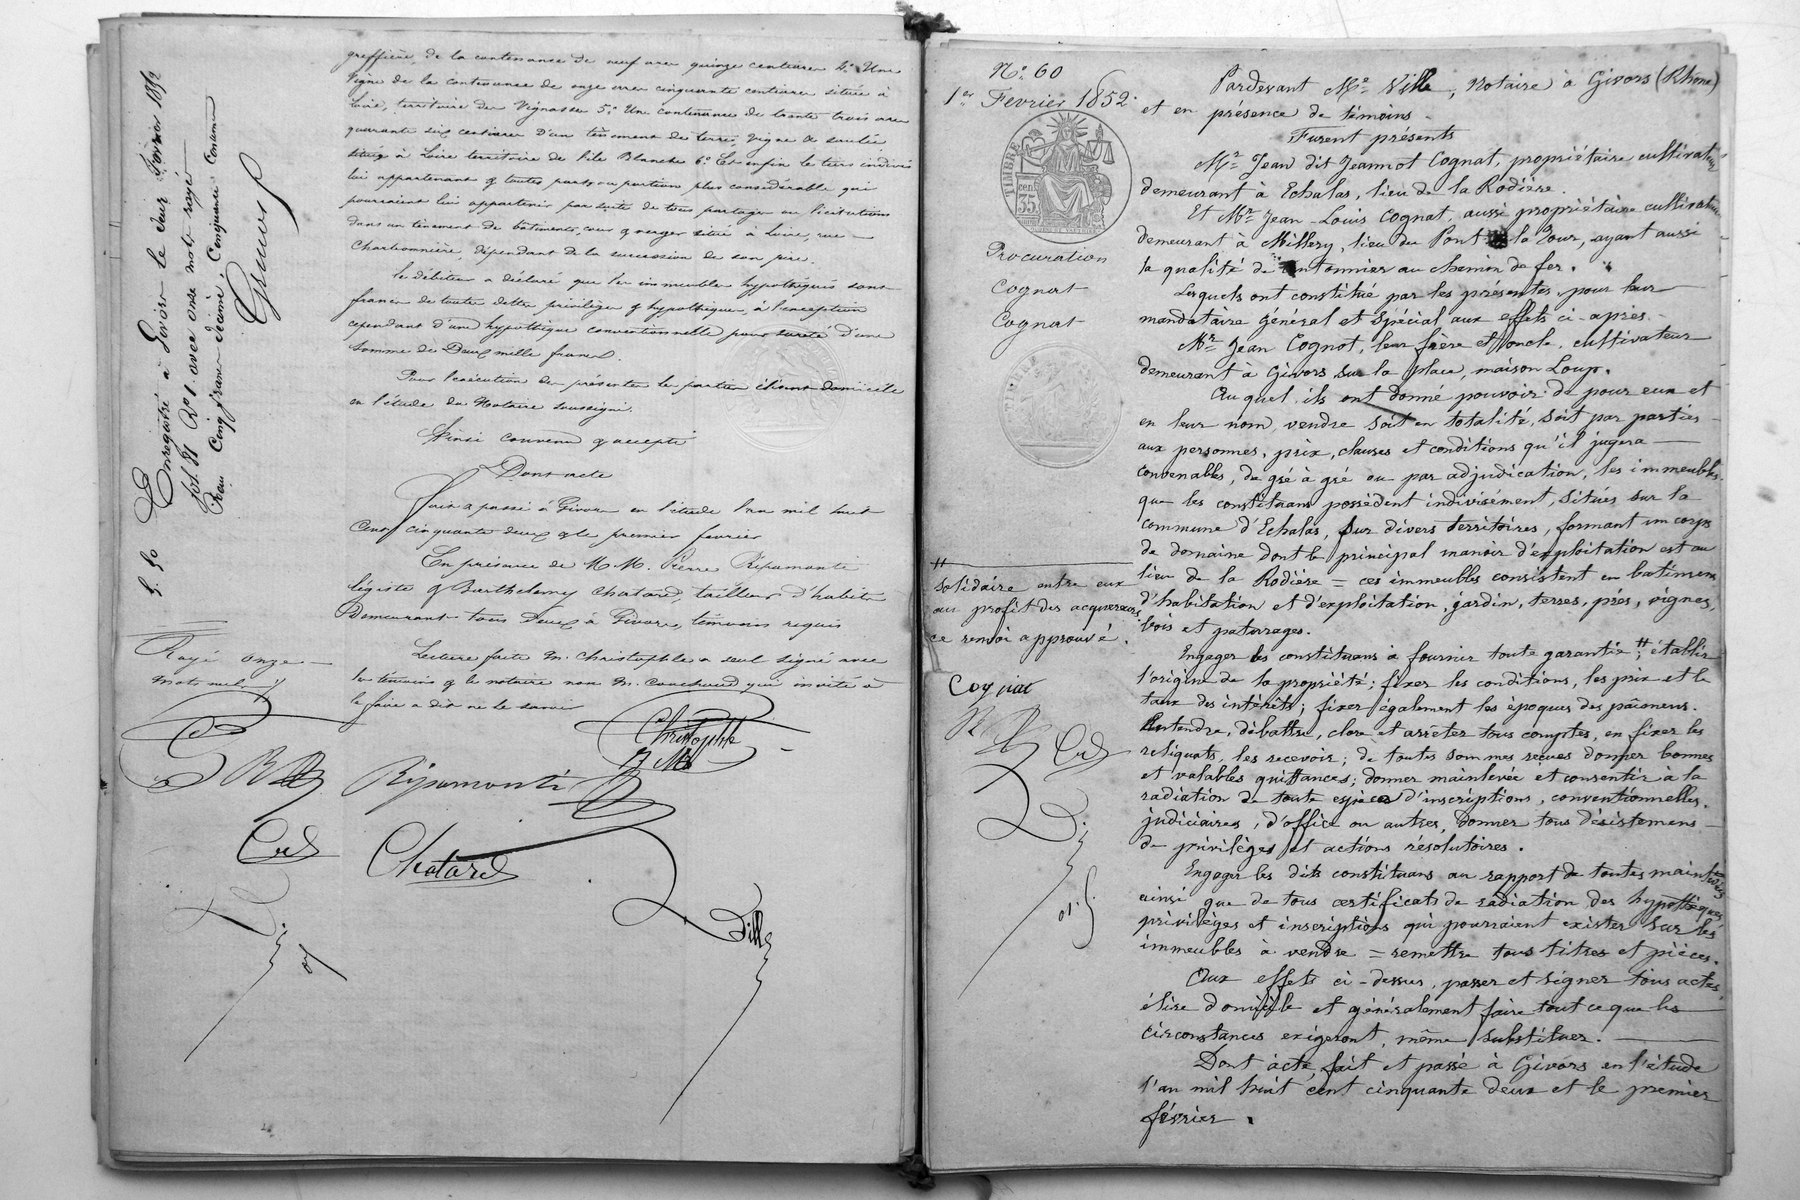 greffière, de la contenance de neuf ares quinze centiares 4.° Une
vigne de la contenance de onze ares cinquante centiares située à
Loire, territoire des Vignasse 5.° Une contenance de trente trois ares
quarante six centiares d'un tènement de terre, vigne & saulée
situé à Loire territoire de l'île Blanche 6.° Et enfin le tiers indivis
lui appartenant & toutes parts ou portion plus considérable qui
pourraient lui appartenir par suite de tous partages ou licitations
dans un tènement de bâtiments, cour & verger situé à Loire, rue
Charbonnière, dépendant de la succession de son père.
Le débiteur a déclaré que les immeubles hypothéqués sont
francs de toutes dettes privilèges & hypothèques, à l'exception
cependant d'une hypothèque conventionnelle pour sureté d'une
somme de Deux mille francs.
Pour l'exécution des présentes les parties élisent domicile
en l'étude du Notaire soussigné.
Ainsi convenu & accepté
Dont acte
Fait & passé à Givors en l'étude l'an mil huit
cent cinquante deux & le premier février
En présence de M.M. Pierre Ripamonti
légiste & Barthelemy Chatard, tailleur d'habits
Demeurant tous Deux à Givors, témoins requis
Lecture faite M. Christophle a seul signé avec
les témoins & le notaire non M. Couchoud qui invité à
le faire a dit ne le savoir
Christophle
Ripamonti
Chatard
Ville
Enregistré à Givors le deux Février 1852
fol 81 R° 1 avec onze mots rayés
Reçu Cinq francs décime Cinquante Centimes
5. 50
Rayé onze
mots nuls
N.° 60
1.er Fevrier 1852.
TIMBRE
35
Procuration
Cognat
Cognat
Pardevant M.e Ville, Notaire à Givors (Rhone)
et en présence de témoins.
Furent présents
M.r Jean dit Jeannot Cognat, propriétaire cultivateur
demeurant à Echalas, lieu de la Rodière.
Et M.r Jean-Louis Cognat, aussi propriétaire cultivateur
demeurant à Millery, lieu du Pont la Tour, ayant aussi
la qualité de cantonnier au chemin de fer.
Lesquels ont constitué par les présentes, pour leur
mandataire général et spécial aux effets ci-apres.
M.r Jean Cognat, leur frère et oncle, cultivateur
demeurant à Givors sur la place, maison Loup.
Au quel ils ont donné pouvoir de pour eux et
en leur nom, vendre soit en totalité, soit par parties
aux personnes, prix, clauses et conditions qu'il jugera
convenables, de gré à gré ou par adjudication, les immeubles
que les constituans possèdent indivisément, situés sur la
commune d'Echalas, sur divers territoires, formant un corps
de domaine dont le principal manoir d'exploitation est au
lieu de la Rodière = ces immeubles consistent en batimens
d'habitation et d'exploitation, jardin, terres, prés, vignes,
bois et paturages.
Engager les constituans à fournir toute garantie # ; établir
l'origine de la propriété; fixer les conditions, les prix et le
taux des intérêts; fixer également les époques des paiemens.
Entendre, débattre, clore et arrêter tous comptes, en fixer les
reliquats, les recevoir; de toutes sommes reçues donner bonnes
et valables quittances; donner mainlevée et consentir à la
radiation de toute espèce d'inscriptions, conventionnelles,
judiciaires, d'office ou autres, donner tous désistemens
de privilèges et actions résolutoires.
Engager les dits constituans au rapport de toutes mainlevées
ainsi que de tous certificats de radiation des hypothèques,
privilèges et inscriptions qui pourraient exister sur les
immeubles à vendre = remettre tous titres et pièces.
Aux effets ci-dessus, passer et signer tous actes,
élire domicile et généralement faire tout ce que les
circonstances exigeront, même substituer.
Dont acte, fait et passé à Givors en l'étude
l'an mil huit cent cinquante deux et le premier
février.
#
solidaire entre eux
au profit des acquereurs,
ce renvoi approuvé.
Cognat